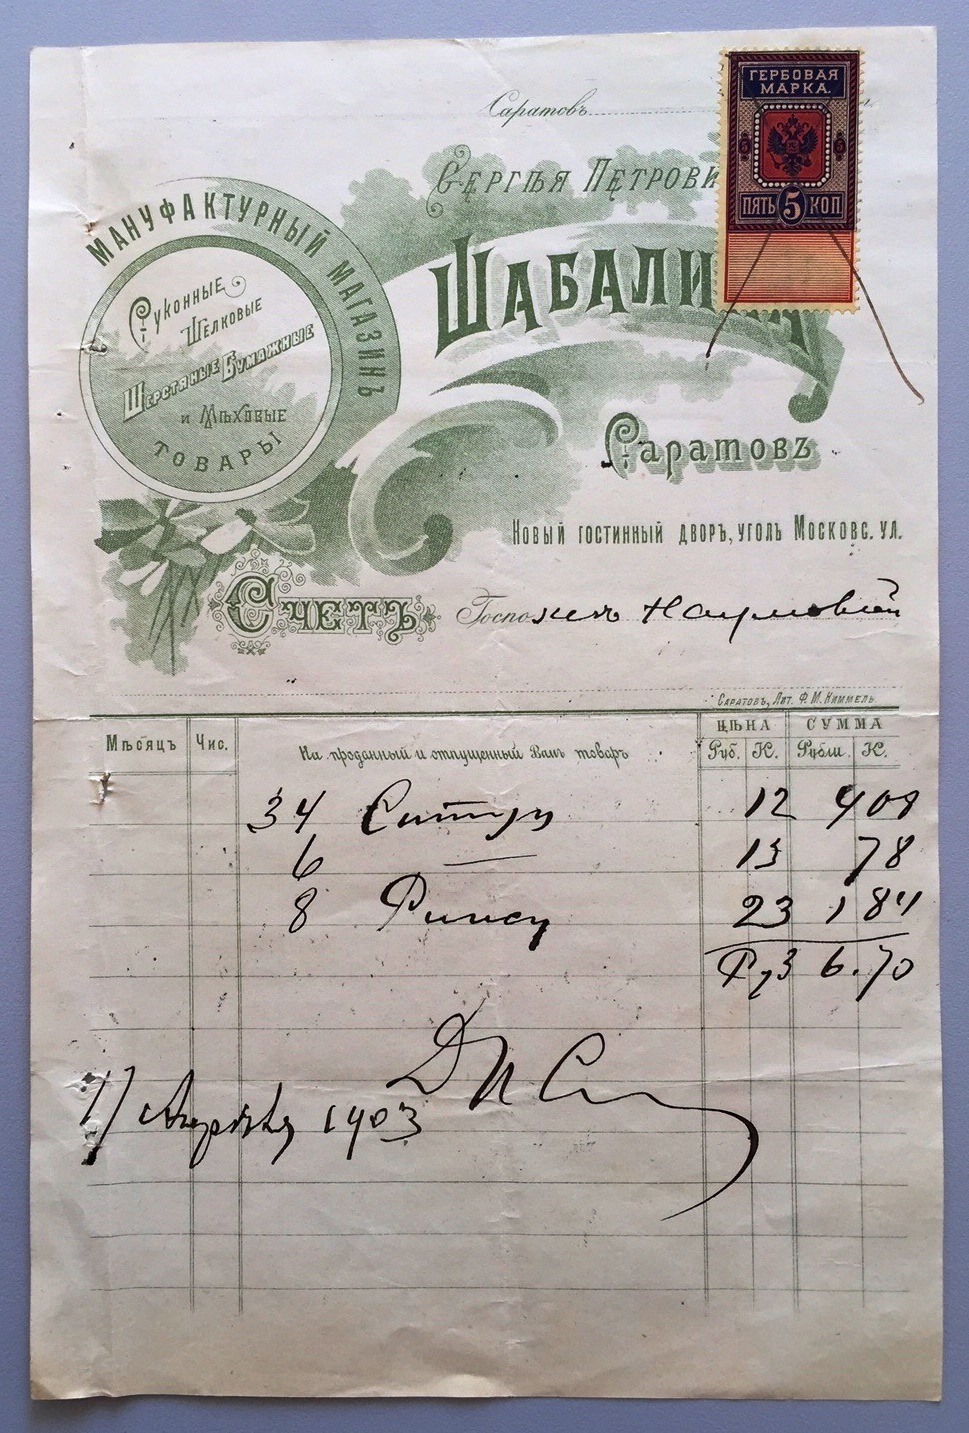 Саратовъ
ГЕРБОВАЯ
МАРКА.
5 5
ПЯТЬ 5 КОП
Сергѣя Петрови
ШАБАЛИ
МАНУФАКТУРНЫЙ МАГАЗИНЪ
Суконные
Шелковые
Шерстяные Бумажные
и Мѣховые
ТОВАРЫ
Саратовъ
Новый гостинный дворъ, уголъ Московс. ул.
Счетъ Госпожѣ Наумовой
Саратовъ, Лит. Ф. М. Киммель
Мѣсяцъ Чис. На проданный и отпущенный Вамъ товаръ ЦѢНА СУММА
Руб. К. Рубли. К.
34 Ситцу 12 4 08
6 13 78
8 23 1 84
Руб 6.70
17 Апрѣля 1903